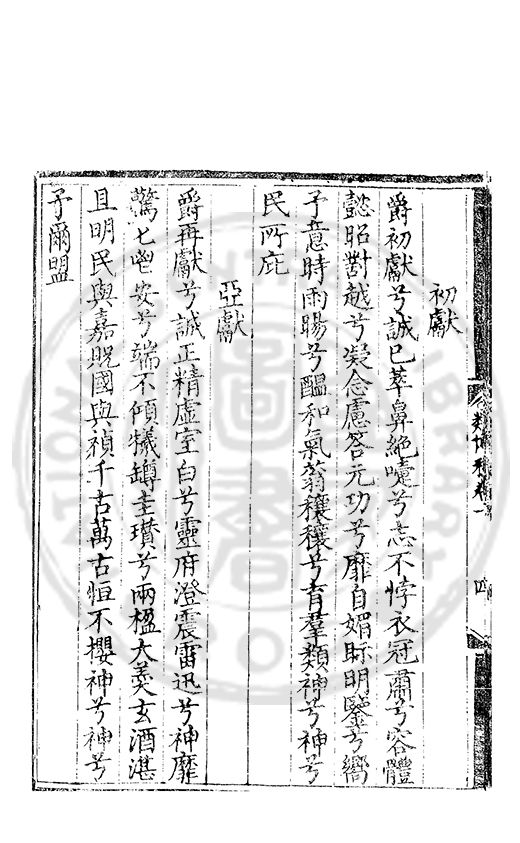 初獻
爵初獻兮誠已萃鼻絶嚏兮志不悖衣冠肅兮容體
懿昭對越兮凝念慮答元功兮靡自媚眎明鑒兮嚮
予意時雨暘兮醖和氣蓊穰穰兮育羣類神兮神兮
民所庇
亞獻
爵再獻兮誠正精虛室白兮靈府澄震雷迅兮神靡
驚匕鬯安兮端不傾犧罇圭瓚兮兩楹大羮玄酒湛
且明民與嘉貺國與禎千古萬古恒不櫻神兮神兮
予爾盟
類博稿卷一
四